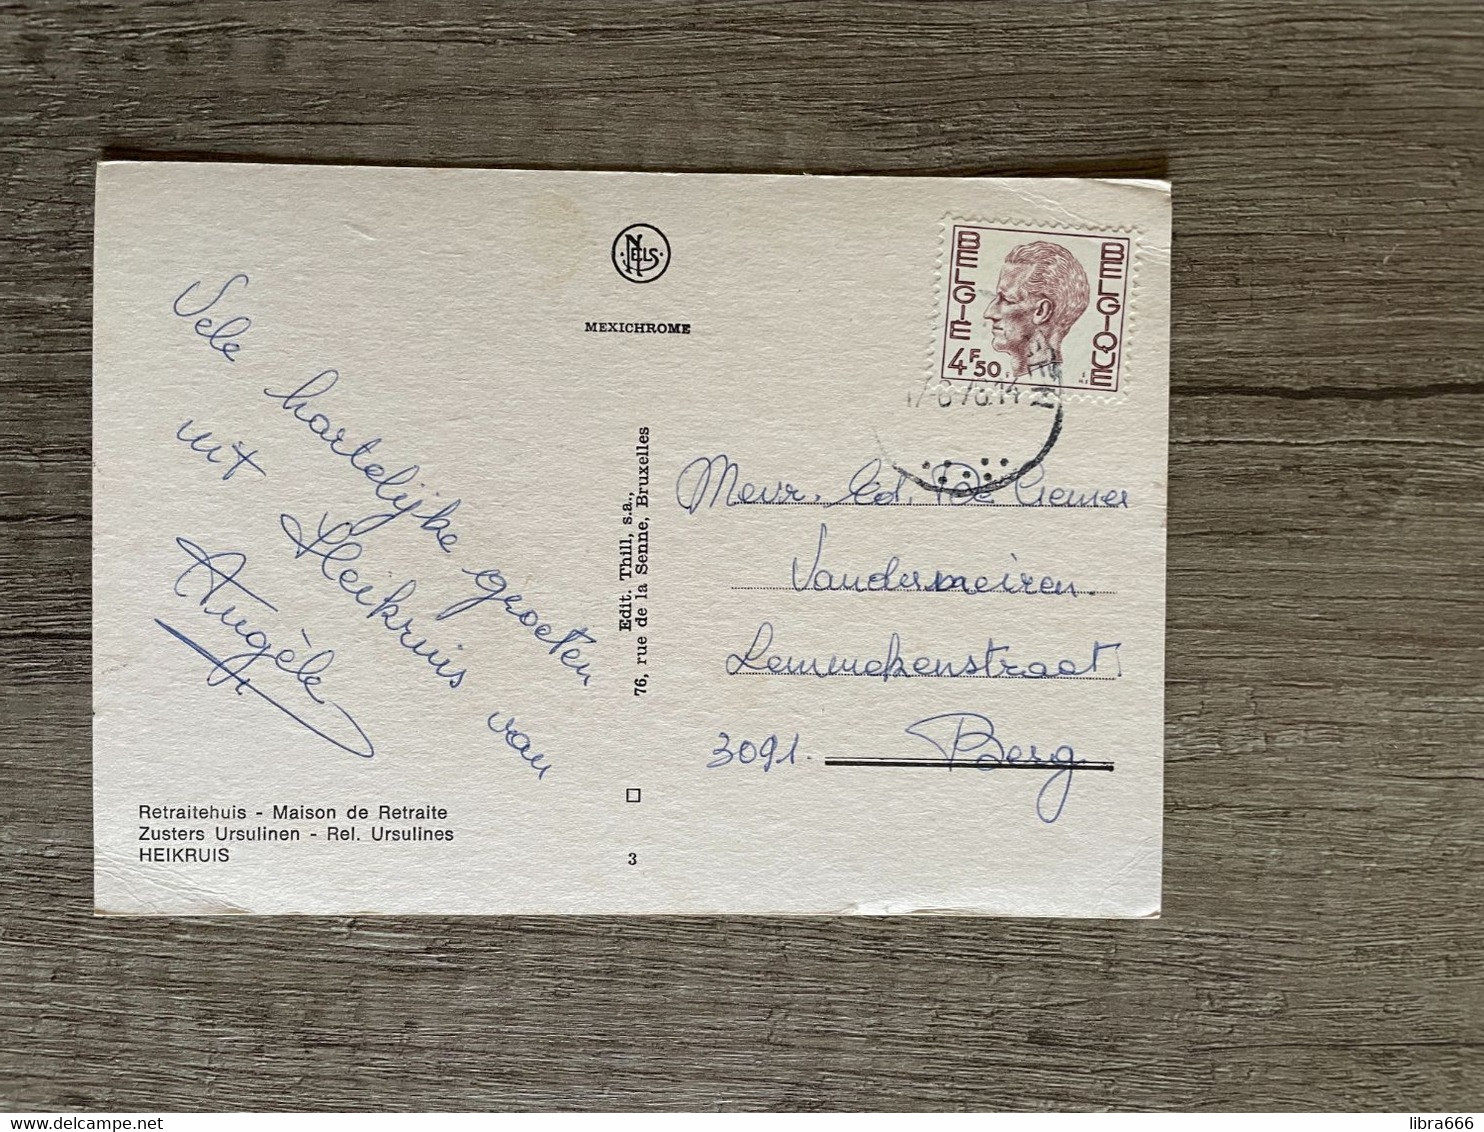 Vele hartelijke groeten
uit Heikruis van
Angèle
Retraitehuis - Maison de Retraite
Zusters Ursulinen - Rel. Ursulines
HEIKRUIS
NELS
MEXICHROME
Edit. Thill, s.a.,
76, rue de la Senne, Bruxelles
3
BELGIË
BELGIQUE
4F50
Mevr. Ed. De Cremer
Vandermeiren.
Lemmekenstraat
3091. Berg
delcampe.net
libra666